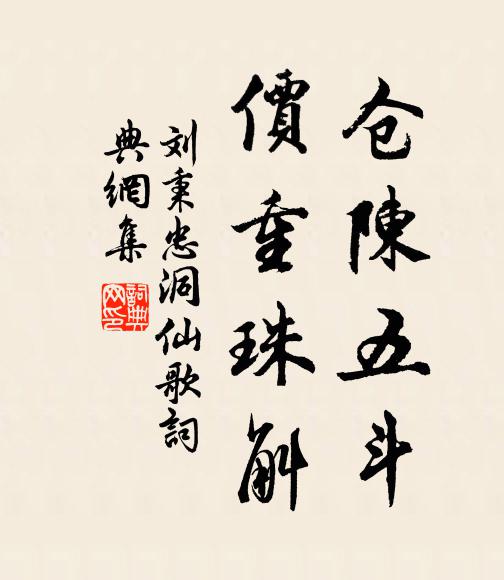 仓陳五斗
價重珠斛
刘秉忠洞仙歌詞
典網集
詞典
网印